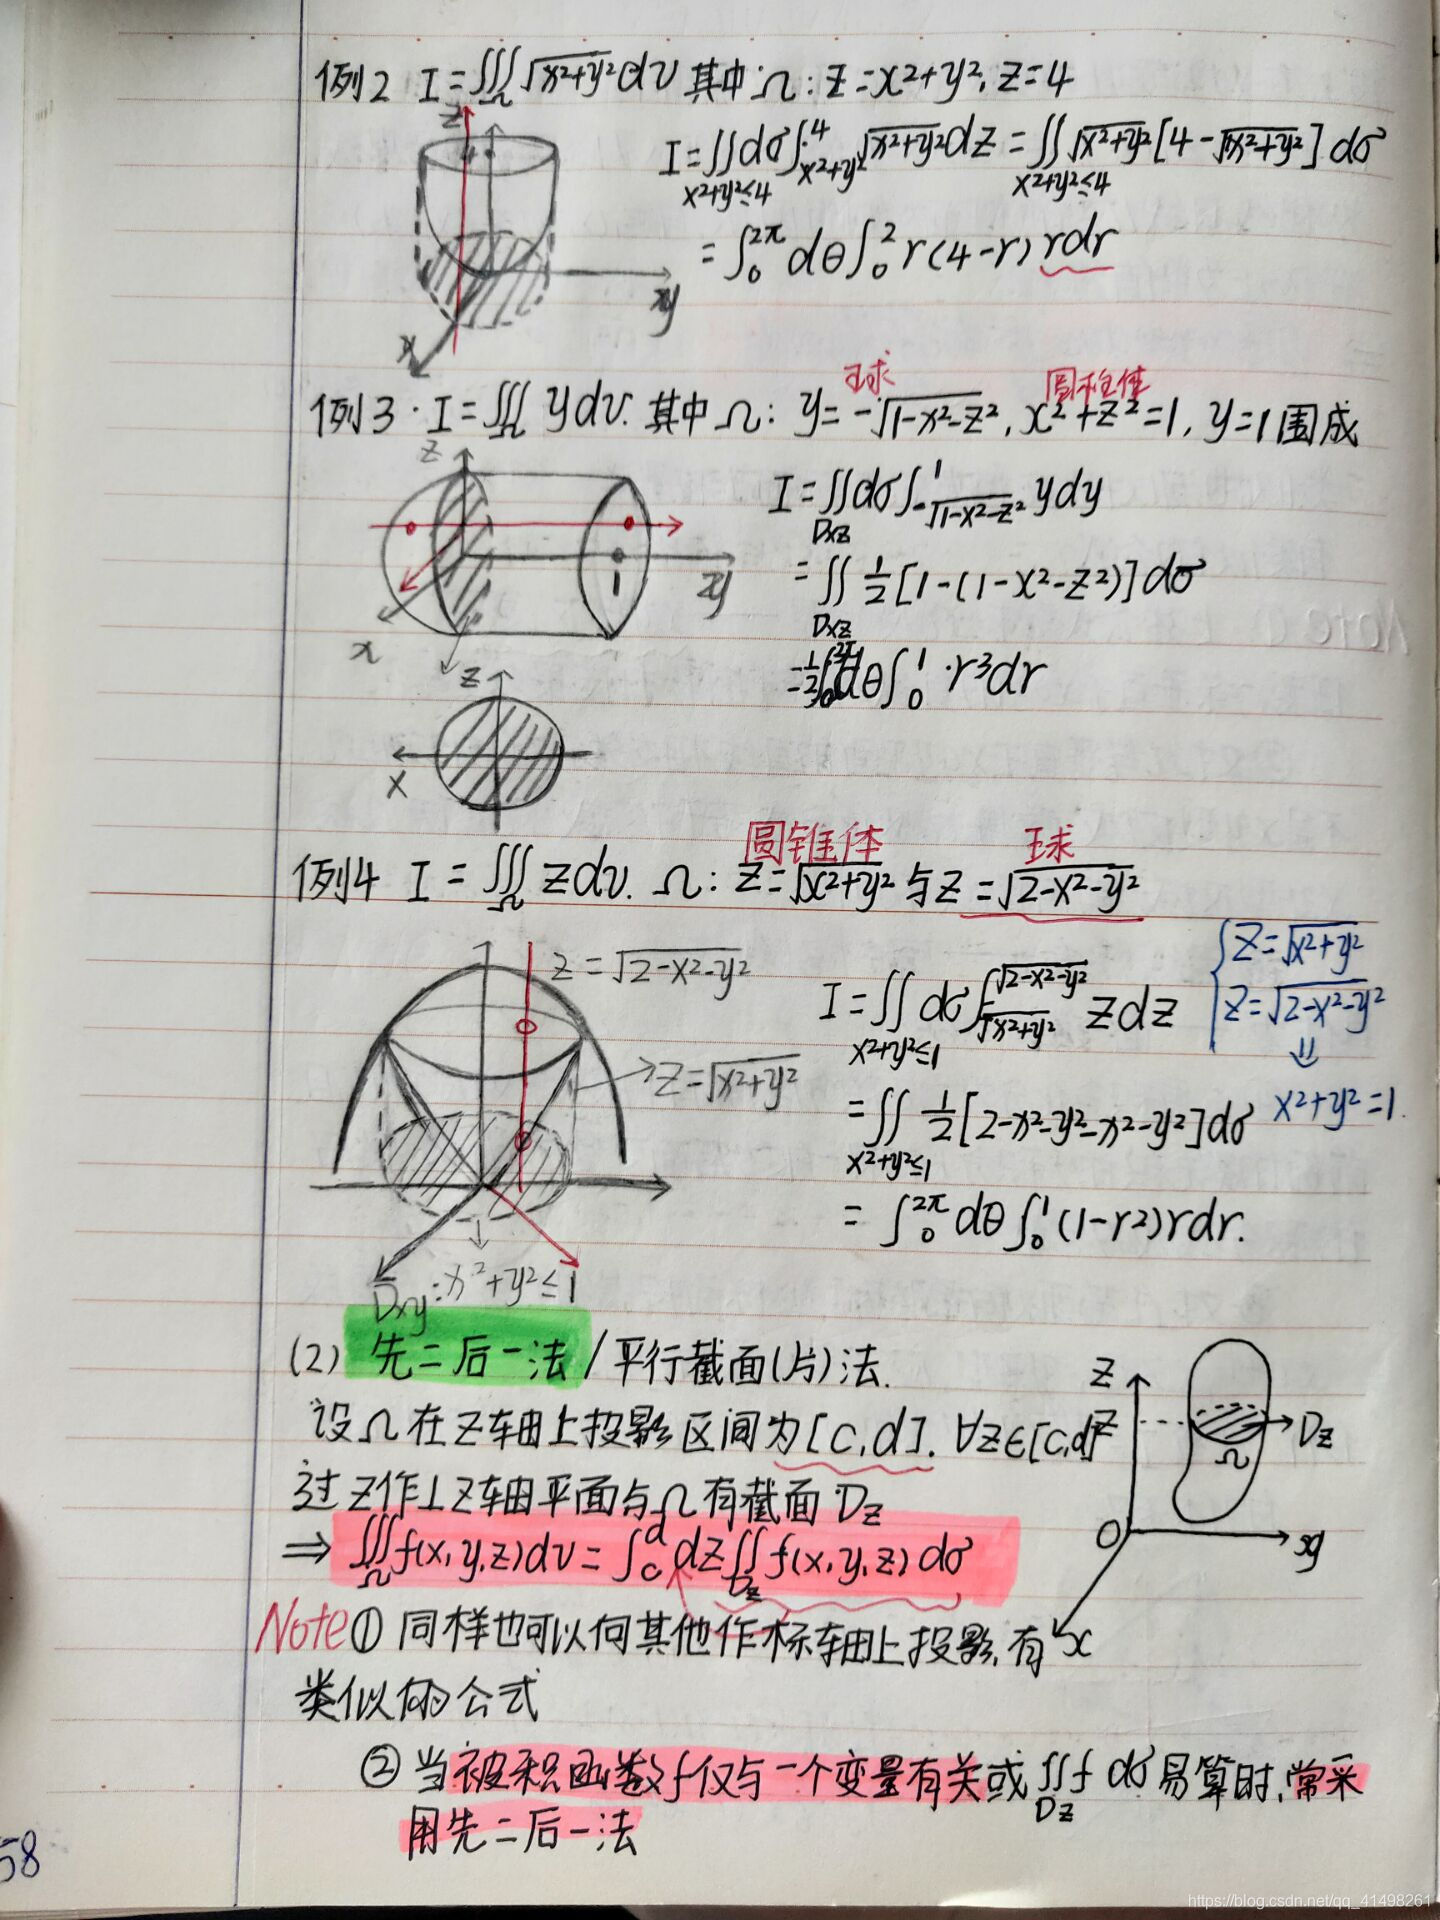 例2 I=∭_Ω √(x²+y²) dv 其中Ω: z=x²+y², z=4
z
4
I=∬_{x²+y²≤4} dσ ∫_{x²+y²}^{4} √(x²+y²) dz = ∬_{x²+y²≤4} √(x²+y²) [4-√(x²+y²)] dσ
= ∫_0^{2π} dθ ∫_0^2 r(4-r) rdr
y
x
球 圆柱体
例3. I=∭_Ω y dv. 其中Ω: y=-√(1-x²-z²), x²+z²=1, y=1围成
z
I=∬_{Dxz} dσ ∫_{-√(1-x²-z²)}^{1} y dy
1
y
= ∬_{Dxz} ½[1-(1-x²-z²)] dσ
x
z
=½∫_0^{2π} dθ ∫_0^1 ·r³dr
x
圆锥体 球
例4 I=∭_Ω z dv. Ω: z=√(x²+y²) 与 z=√(2-x²-y²)
z=√(2-x²-y²)
z=√(x²+y²)
I=∬_{x²+y²≤1} dσ ∫_{√(x²+y²)}^{√(2-x²-y²)} z dz
= ∬_{x²+y²≤1} ½[2-x²-y²-x²-y²] dσ
= ∫_0^{2π} dθ ∫_0^1 (1-r²) rdr.
{z=√(x²+y²)
z=√(2-x²-y²)
⇓
x²+y²=1.
Dxy: x²+y²≤1
(2) 先二后一法/平行截面(片)法.
设Ω在z轴上投影区间为[c,d]. ∀z∈[c,d]
过z作⊥z轴平面与Ω有截面Dz
⇒ ∭_Ω f(x,y,z)dv = ∫_c^d dz ∬_{Dz} f(x,y,z) dσ
z
z
Dz
Ω
O
y
x
Note ① 同样也可以向其他作标轴上投影,有
类似的公式
② 当被积函数f仅与一个变量有关或 ∬_{Dz} f dσ 易算时,常采
用先二后一法
58
https://blog.csdn.net/qq_41498261